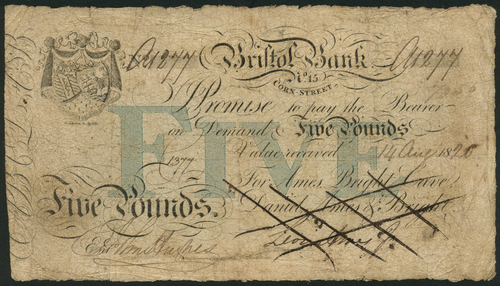 1277 Bristol Bank 1277
No. 15
CORN STREET
I Promise to pay the Bearer
on Demand Five Pounds
Value received 14 Aug 1820
FIVE
1377
For Ames, Bright, Cave,
Five Pounds. Daniel, Ames & Bright
Entd